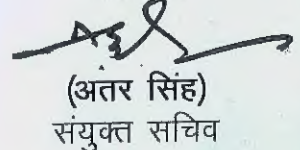 (अंतर सिंह)
संयुक्त सचिव